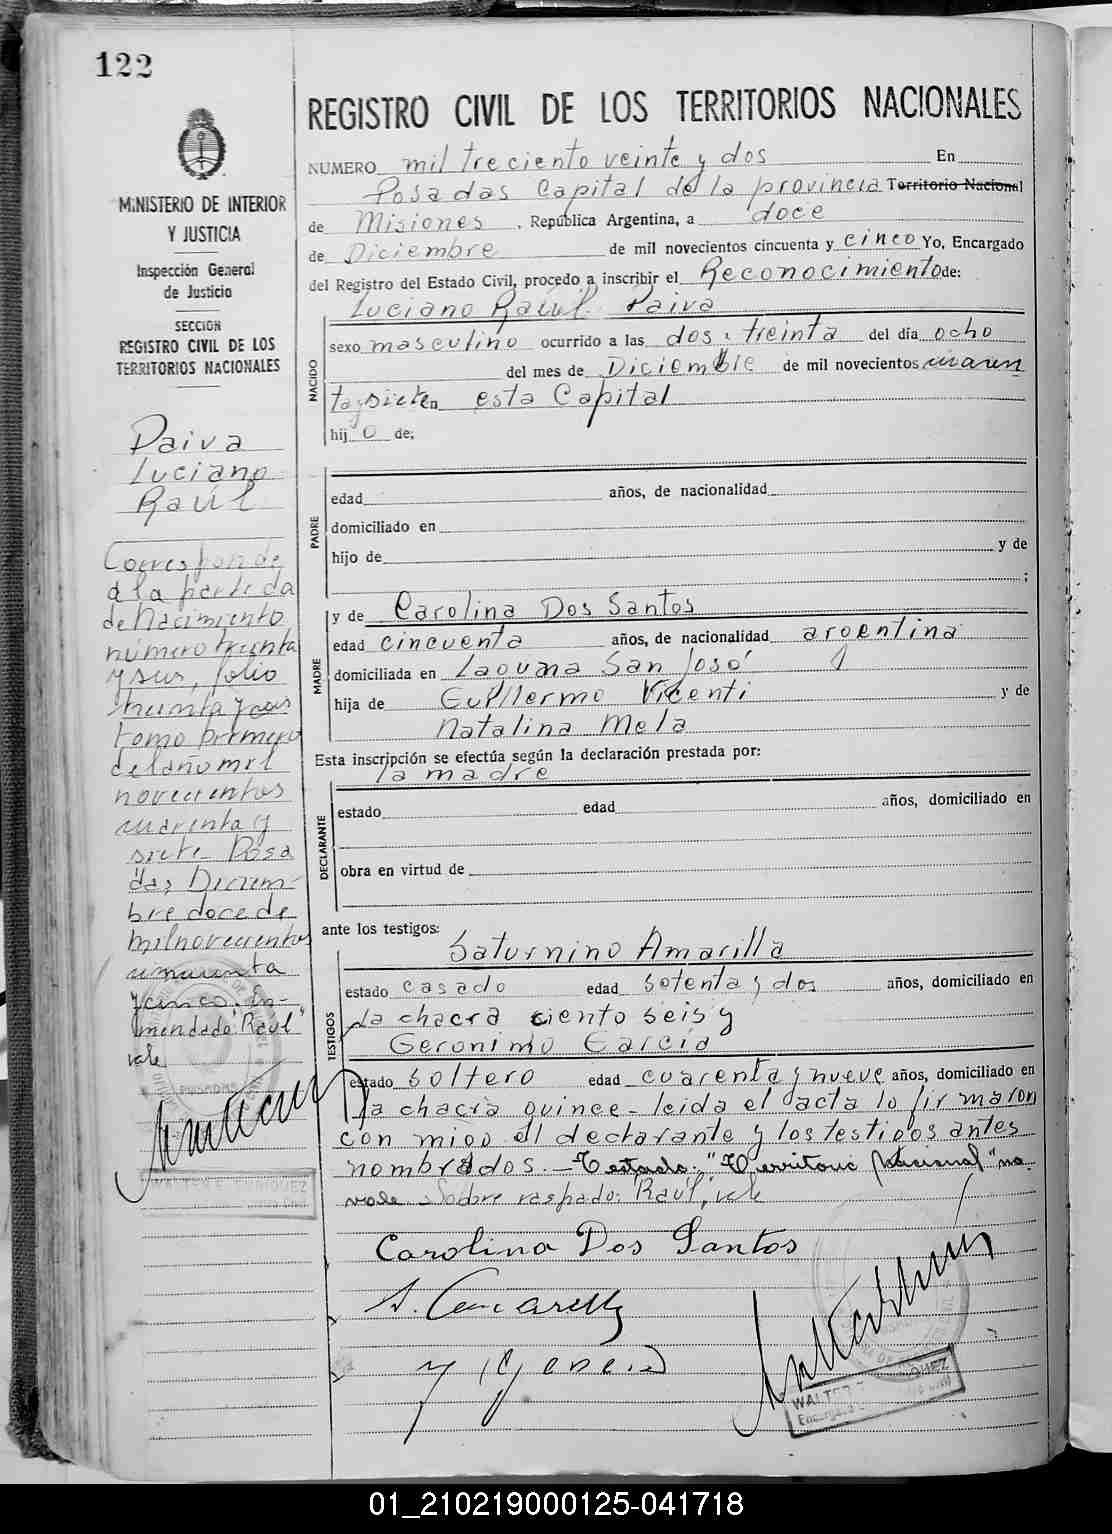 122
MINISTERIO DE INTERIOR
Y JUSTICIA
Inspección General
de Justicia
SECCIÓN
REGISTRO CIVIL DE LOS
TERRITORIOS NACIONALES
Paiva
Luciano
Raúl
Corresponde
a la partida
de Nacimiento
número treinta
y seis, folio
treinta y seis
tomo primero
del año mil
novecientos
cuarenta y
siete. Posa
das, Diciem-
bre doce de
mil novecientos
cincuenta
y cinco. En-
mendado "Raúl"
vale
REGISTRO CIVIL DE LOS TERRITORIOS NACIONALES
NUMERO mil treciento veinte y dos En
Posadas Capital de la provincia Territorio Nacional
de Misiones, República Argentina, a doce
de Diciembre de mil novecientos cincuenta y cinco Yo, Encargado
del Registro del Estado Civil, procedo a inscribir el Reconocimiento de:
Luciano Raúl Paiva
NACIDO
sexo masculino ocurrido a las dos y treinta del día ocho
del mes de Diciembre de mil novecientos cuaren
ta y siete en esta Capital
hijo de:
PADRE
edad años, de nacionalidad
domiciliado en
hijo de y de
;
MADRE
y de Carolina Dos Santos
edad cincuenta años, de nacionalidad argentina
domiciliada en Laguna San José
hija de Guillermo Vicenti y de
Natalina Mela
Esta inscripción se efectúa según la declaración prestada por:
la madre
DECLARANTE
estado edad años, domiciliado en
obra en virtud de
ante los testigos:
Saturnino Amarilla
TESTIGOS
estado casado edad setenta y dos años, domiciliado en
la chacra ciento seis y
Geronimo Garcia
estado soltero edad cuarenta y nueve años, domiciliado en
la chacra quince - leida el acta lo firmaron
con migo el declarante y los testigos antes
nombrados. - Testado: "Territorio Nacional" no
vale - Sobre raspado: Raúl, vale
Carolina Dos Santos
WALTER
Encargado
01_210219000125-041718